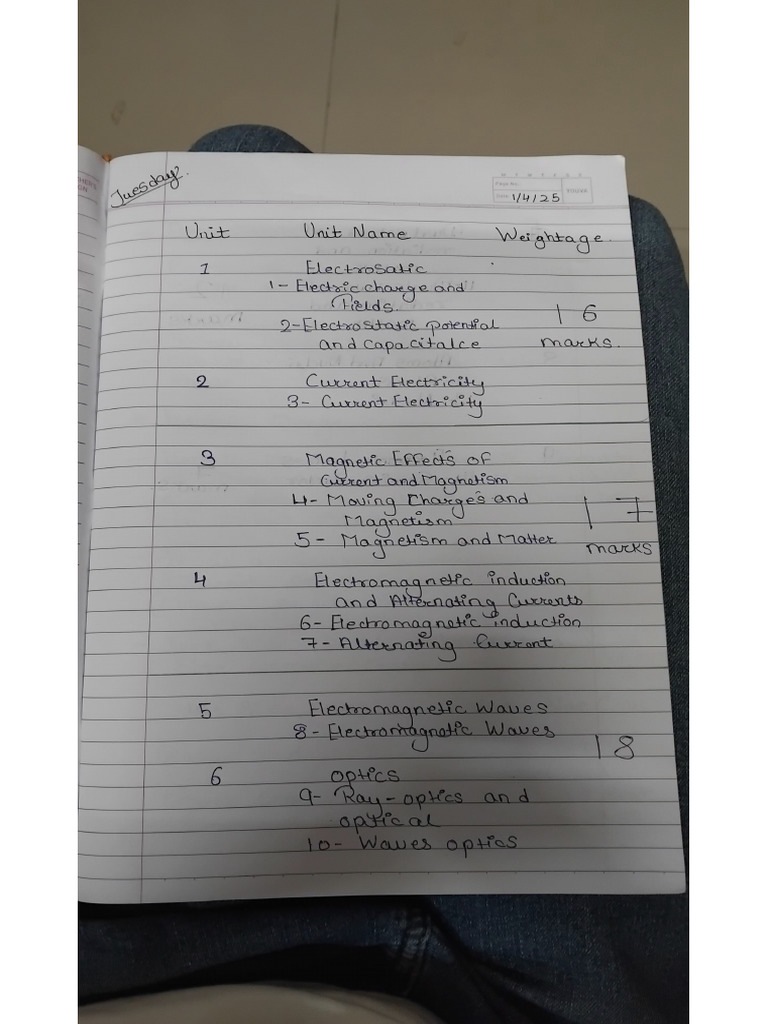 Tuesday.
Page No.:
Date: 1/4/25
Unit Unit Name Weightage.
1 Electrosatic
1- Electric charge and
Fields.
2- Electrostatic potential
and capacitalce
16
marks.
2 Current Electricity
3- Current Electricity
3 Magnetic Effects of
Current and Magnetism
4- Moving Charges and
Magnetism
5- Magnetism and Matter
17
marks
4 Electromagnetic induction
and Alternating Currents
6- Electromagnetic induction
7- Alternating Current
5 Electromagnetic Waves
8- Electromagnetic Waves
18
6 optics
9- Ray-optics and
optical
10- Waves optics